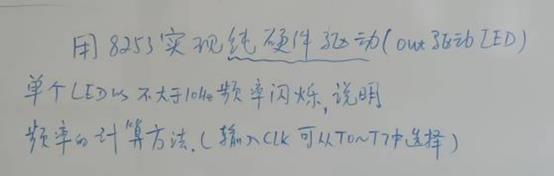 用8253实现纯硬件驱动(out驱动LED)
单个LED以不大于10Hz频率闪烁,说明
频率的计算方法.(输入CLK可从T0~T7中选择)